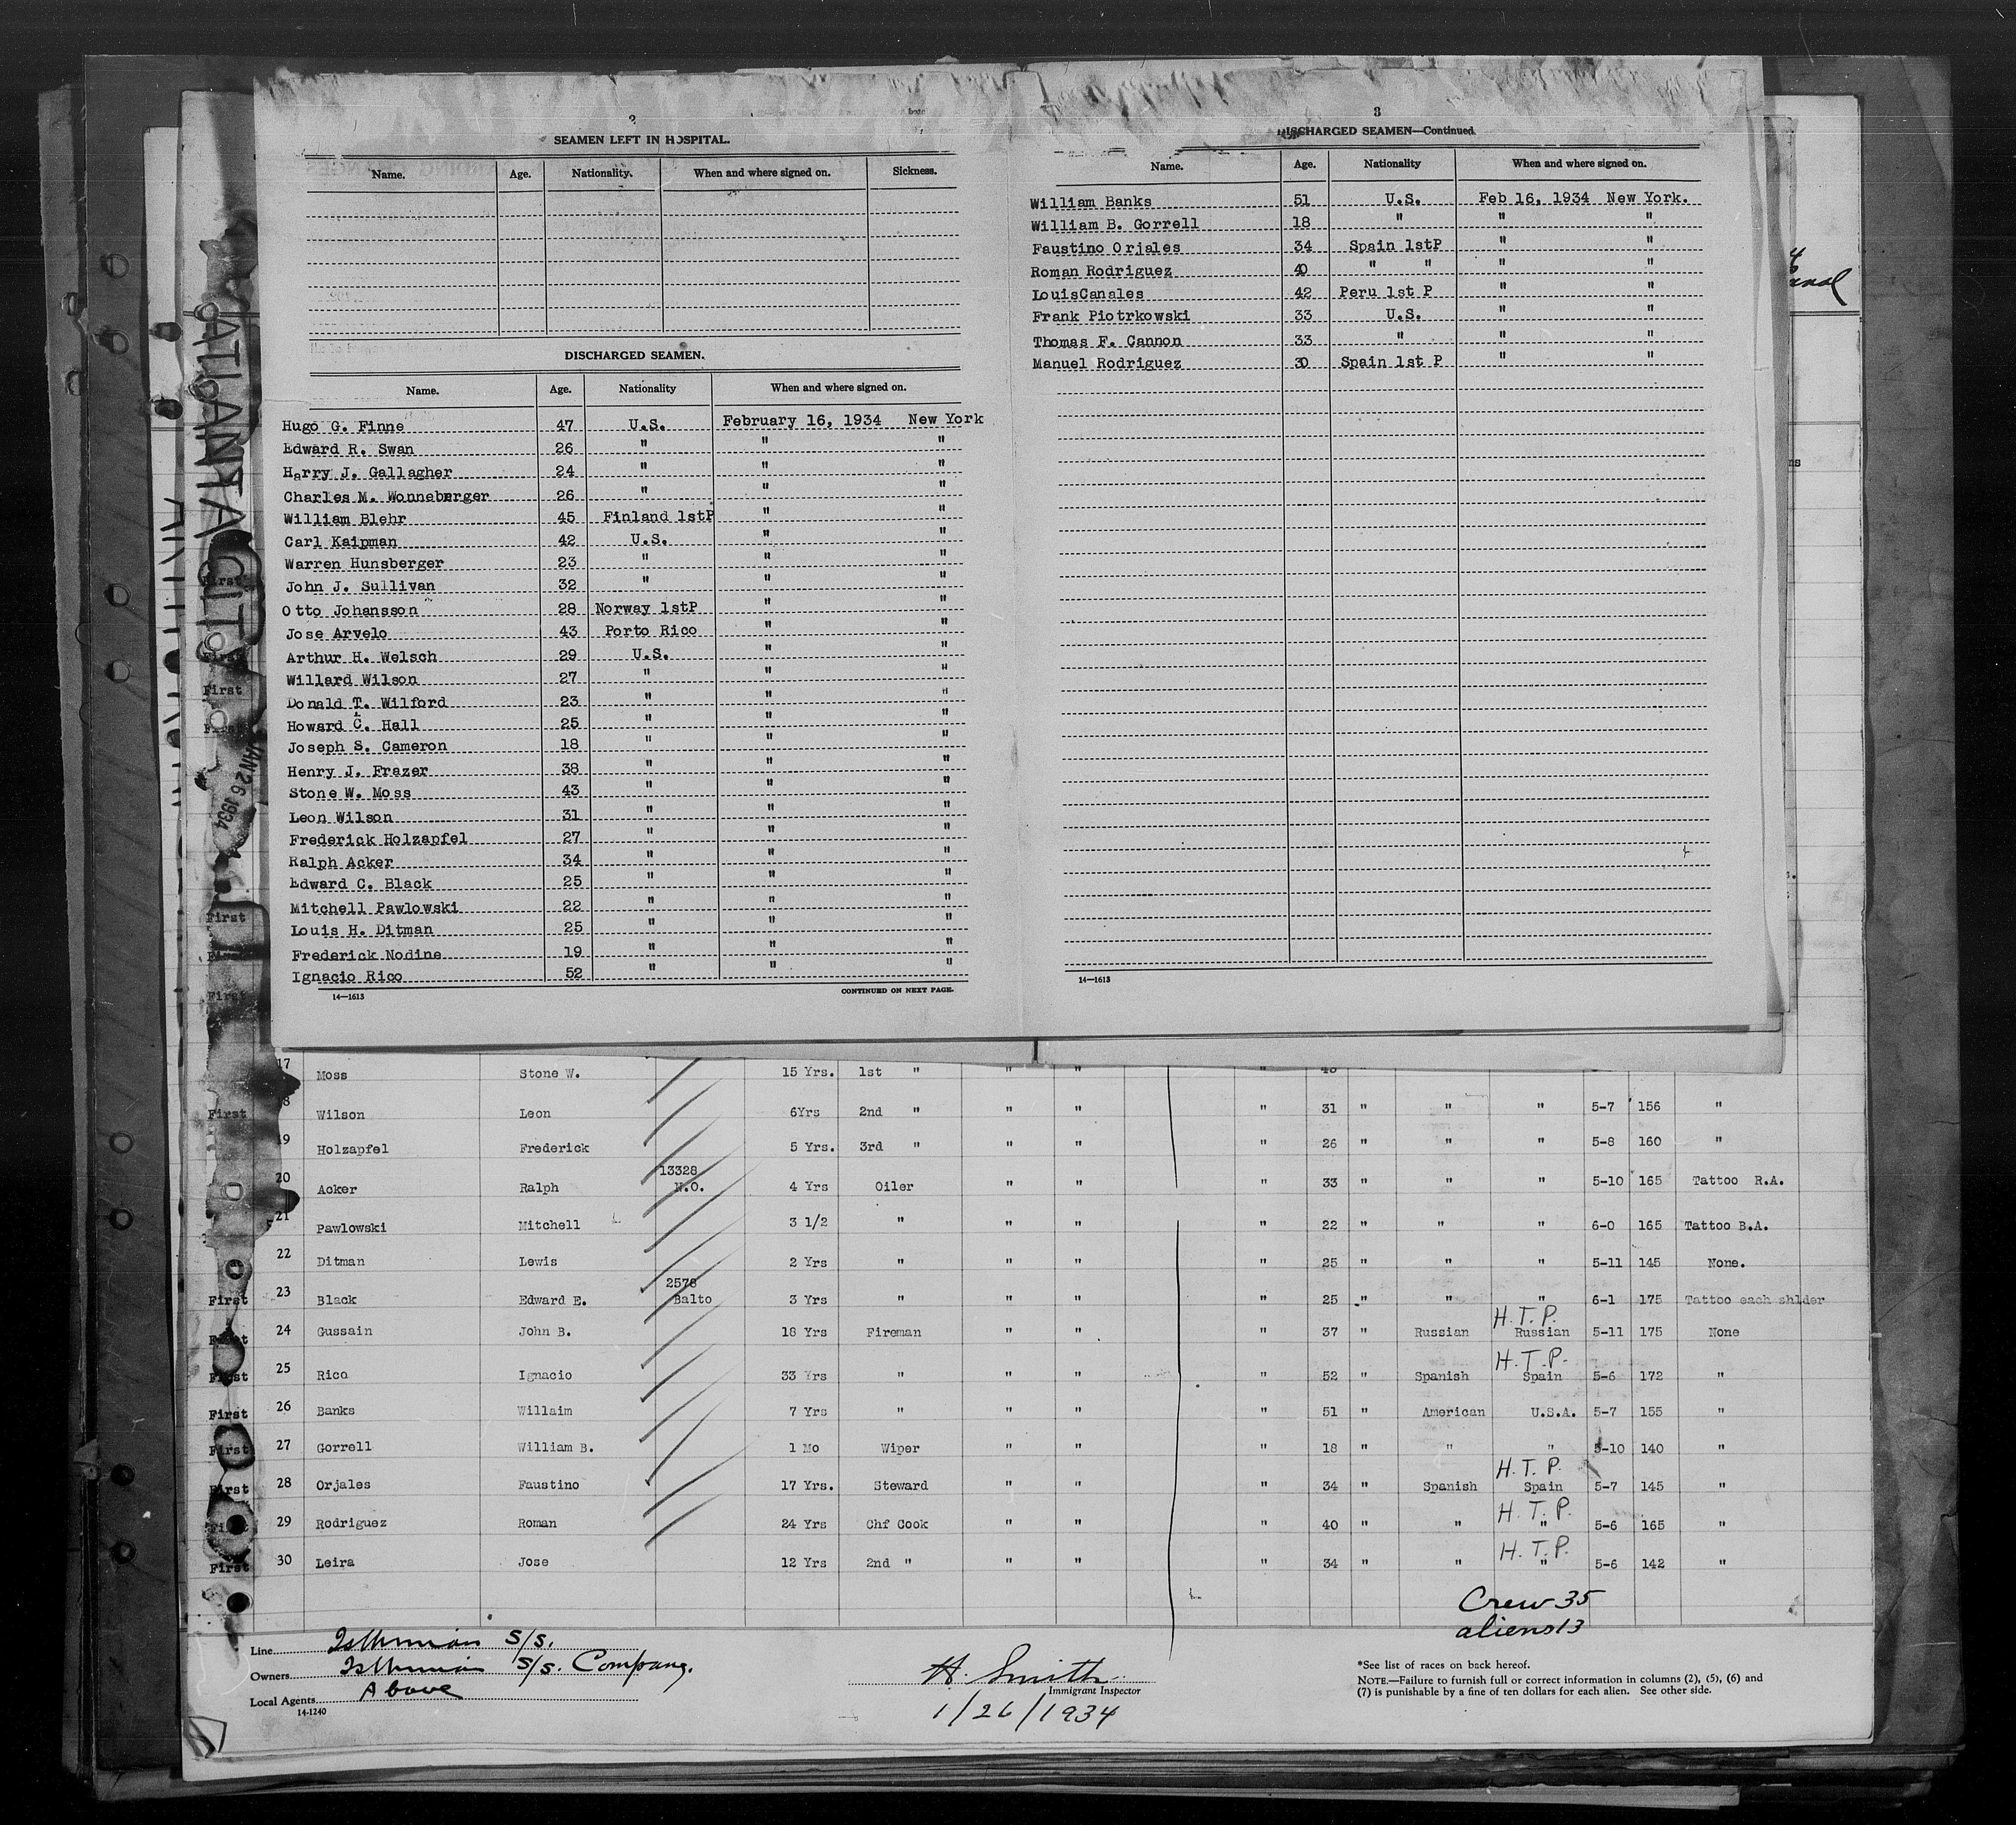 2
SEAMEN LEFT IN HOSPITAL.
Name. Age. Nationality. When and where signed on. Sickness.
DISCHARGED SEAMEN.
Name. Age. Nationality When and where signed on.
Hugo G. Finne 47 U.S. February 16, 1934 New York
Edward R. Swan 26 " " "
Harry J. Gallagher 24 " " "
Charles M. Wonneberger 26 " " "
William Blehr 45 Finland 1stP " "
Carl Kaipman 42 U.S. " "
Warren Hunsberger 23 " " "
John J. Sullivan 32 " " "
Otto Johansson 28 Norway 1stP " "
Jose Arvelo 43 Porto Rico " "
Arthur H. Welsch 29 U.S. " "
Willard Wilson 27 " " "
Donald T. Wilford 23 " " "
Howard C. Hall 25 " " "
Joseph S. Cameron 18 " " "
Henry J. Frazer 38 " " "
Stone W. Moss 43 " " "
Leon Wilson 31 " " "
Frederick Holzapfel 27 " " "
Ralph Acker 34 " " "
Edward C. Black 25 " " "
Mitchell Pawlowski 22 " " "
Louis H. Ditman 25 " " "
Frederick Nodine 19 " " "
Ignacio Rico 52 " " "
14—1613 CONTINUED ON NEXT PAGE.
3
DISCHARGED SEAMEN—Continued
Name. Age. Nationality When and where signed on.
William Banks 51 U.S. Feb 16, 1934 New York.
William B. Gorrell 18 " " "
Faustino Orjales 34 Spain 1stP " "
Roman Rodriguez 40 " " " "
LouisCanales 42 Peru 1st P " "
Frank Piotrkowski 33 U.S. " "
Thomas F. Cannon 33 " " "
Manuel Rodriguez 30 Spain 1st P " "
14—1613
ATLANTA CITY
JAN 26 1934
First
First
First
First
First
First
First
17 Moss Stone W. 15 Yrs. 1st " " " 43
First 8 Wilson Leon 6Yrs 2nd " " " " 31 " " " 5-7 156 "
19 Holzapfel Frederick 5 Yrs. 3rd " " " " 26 " " " 5-8 160 "
13328
20 Acker Ralph N.O. 4 Yrs Oiler " " " 33 " " " 5-10 165 Tattoo R.A.
21 Pawlowski Mitchell 3 1/2 " " " " 22 " " " 6-0 165 Tattoo B.A.
22 Ditman Lewis 2 Yrs " " " " 25 " " " 5-11 145 None.
2578
First 23 Black Edward E. Balto 3 Yrs " " " " 25 " " " 6-1 175 Tattoo each shlder
H.T.P.
First 24 Gussain John B. 18 Yrs Fireman " " " 37 " Russian Russian 5-11 175 None
H.T.P.
First 25 Rico Ignacio 33 Yrs " " " " 52 " Spanish Spain 5-6 172 "
First 26 Banks Willaim 7 Yrs " " " " 51 " American U.S.A. 5-7 155 "
First 27 Gorrell William B. 1 Mo Wiper " " " 18 " " " 5-10 140 "
H.T.P.
First 28 Orjales Faustino 17 Yrs. Steward " " " 34 " Spanish Spain 5-7 145 "
H.T.P.
First 29 Rodriguez Roman 24 Yrs Chf Cook " " " 40 " " " 5-6 165 "
H.T.P.
First 30 Leira Jose 12 Yrs 2nd " " " " 34 " " " 5-6 142 "
Crew 35
aliens 13
Line Isthmian S/S.
Owners Isthmian S/S. Company.
Local Agents Above
14-1240
H. Smith
Immigrant Inspector
1/26/1934
*See list of races on back hereof.
NOTE.—Failure to furnish full or correct information in columns (2), (5), (6) and
(7) is punishable by a fine of ten dollars for each alien. See other side.